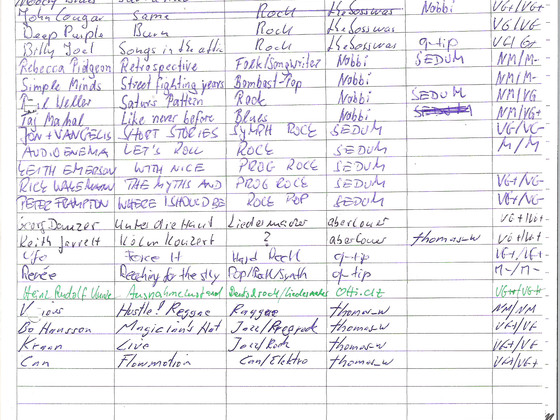 John Cougar Same Rock thebosswas Nobbi VG+/VG+
Deep Purple Burn Rock thebosswas VG/VG-
Billy Joel Songs in the attic Rock thebosswas q-tip VG/G+
Rebecca Pidgeon Retrospective Folk/Songwriter Nobbi SEDUM NM/M-
Simple Minds Street fighting years Bombast-Pop Nobbi NM/M-
Weller Saturns Pattern Rock Nobbi SEDUM NM/VG
Taj Mahal Like never before Blues Nobbi NM/VG+
JON + VANGELIS SHORT STORIES SYMPH ROCK SEDUM VG/VG-
AUDIO ENEMA LET'S ROLL ROCK SEDUM M/M
KEITH EMERSON WITH NICE PROG ROCK SEDUM
RICK WAKEMAN THE MYTHS AND PROG ROCK SEDUM VG+/VG-
PETER FRAMPTON WHERE I SHOULD BE ROCK POP SEDUM VG/VG-
Georg Danzer Unter die Haut Liedermacher aberlours VG+/VG+
Keith Jarrett Köln Konzert ? aberlours thomas-w VG+/VG+
Ufo Force It Hard Rock q-tip
Renée Reaching for the sky Pop/Ball/Synth q-tip M-/M-
Heinz Rudolf Kunze Ausnahmezustand Deutschrock/Liedermacher VG+/VG+
Hustle! Reggae Raggae thomas-w NM/NM
Bo Hansson Magician's Hat Jazz/Progrock thomas-w VG+/VG
Kraan Live Jazz/Rock thomas-w VG+/VG+
Can Flowmotion Can/Elektro thomas-w VG+/VG+